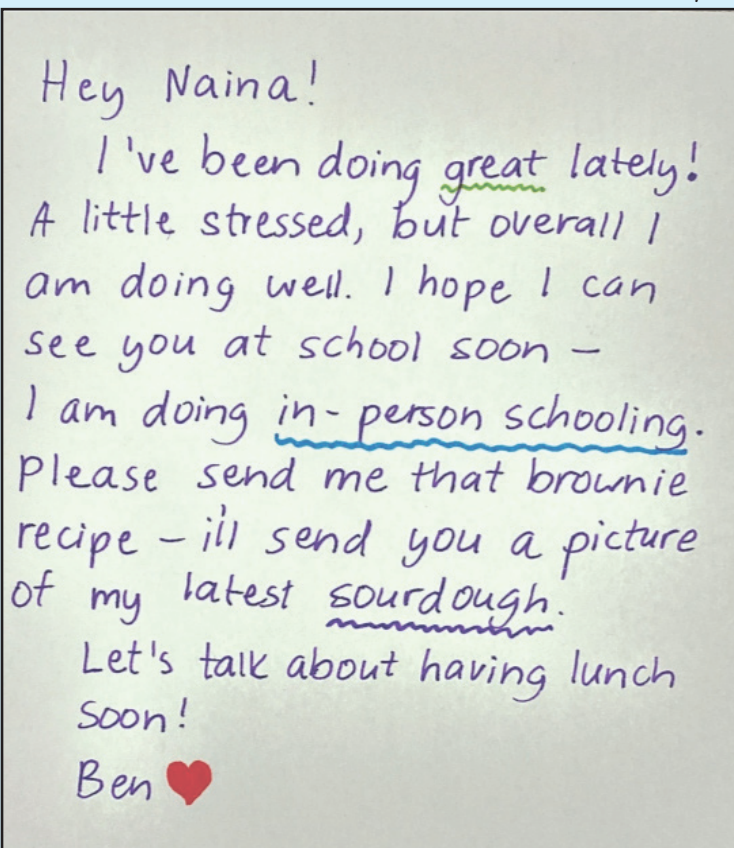 Hey Naina!
I've been doing great lately!
A little stressed, but overall I
am doing well. I hope I can
see you at school soon –
I am doing in-person schooling.
Please send me that brownie
recipe – i'll send you a picture
of my latest sourdough.
Let's talk about having lunch
soon!
Ben ❤